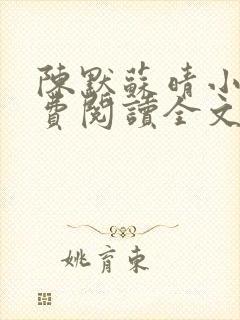 陳默蘇晴小
費閱讀全文
姚育東